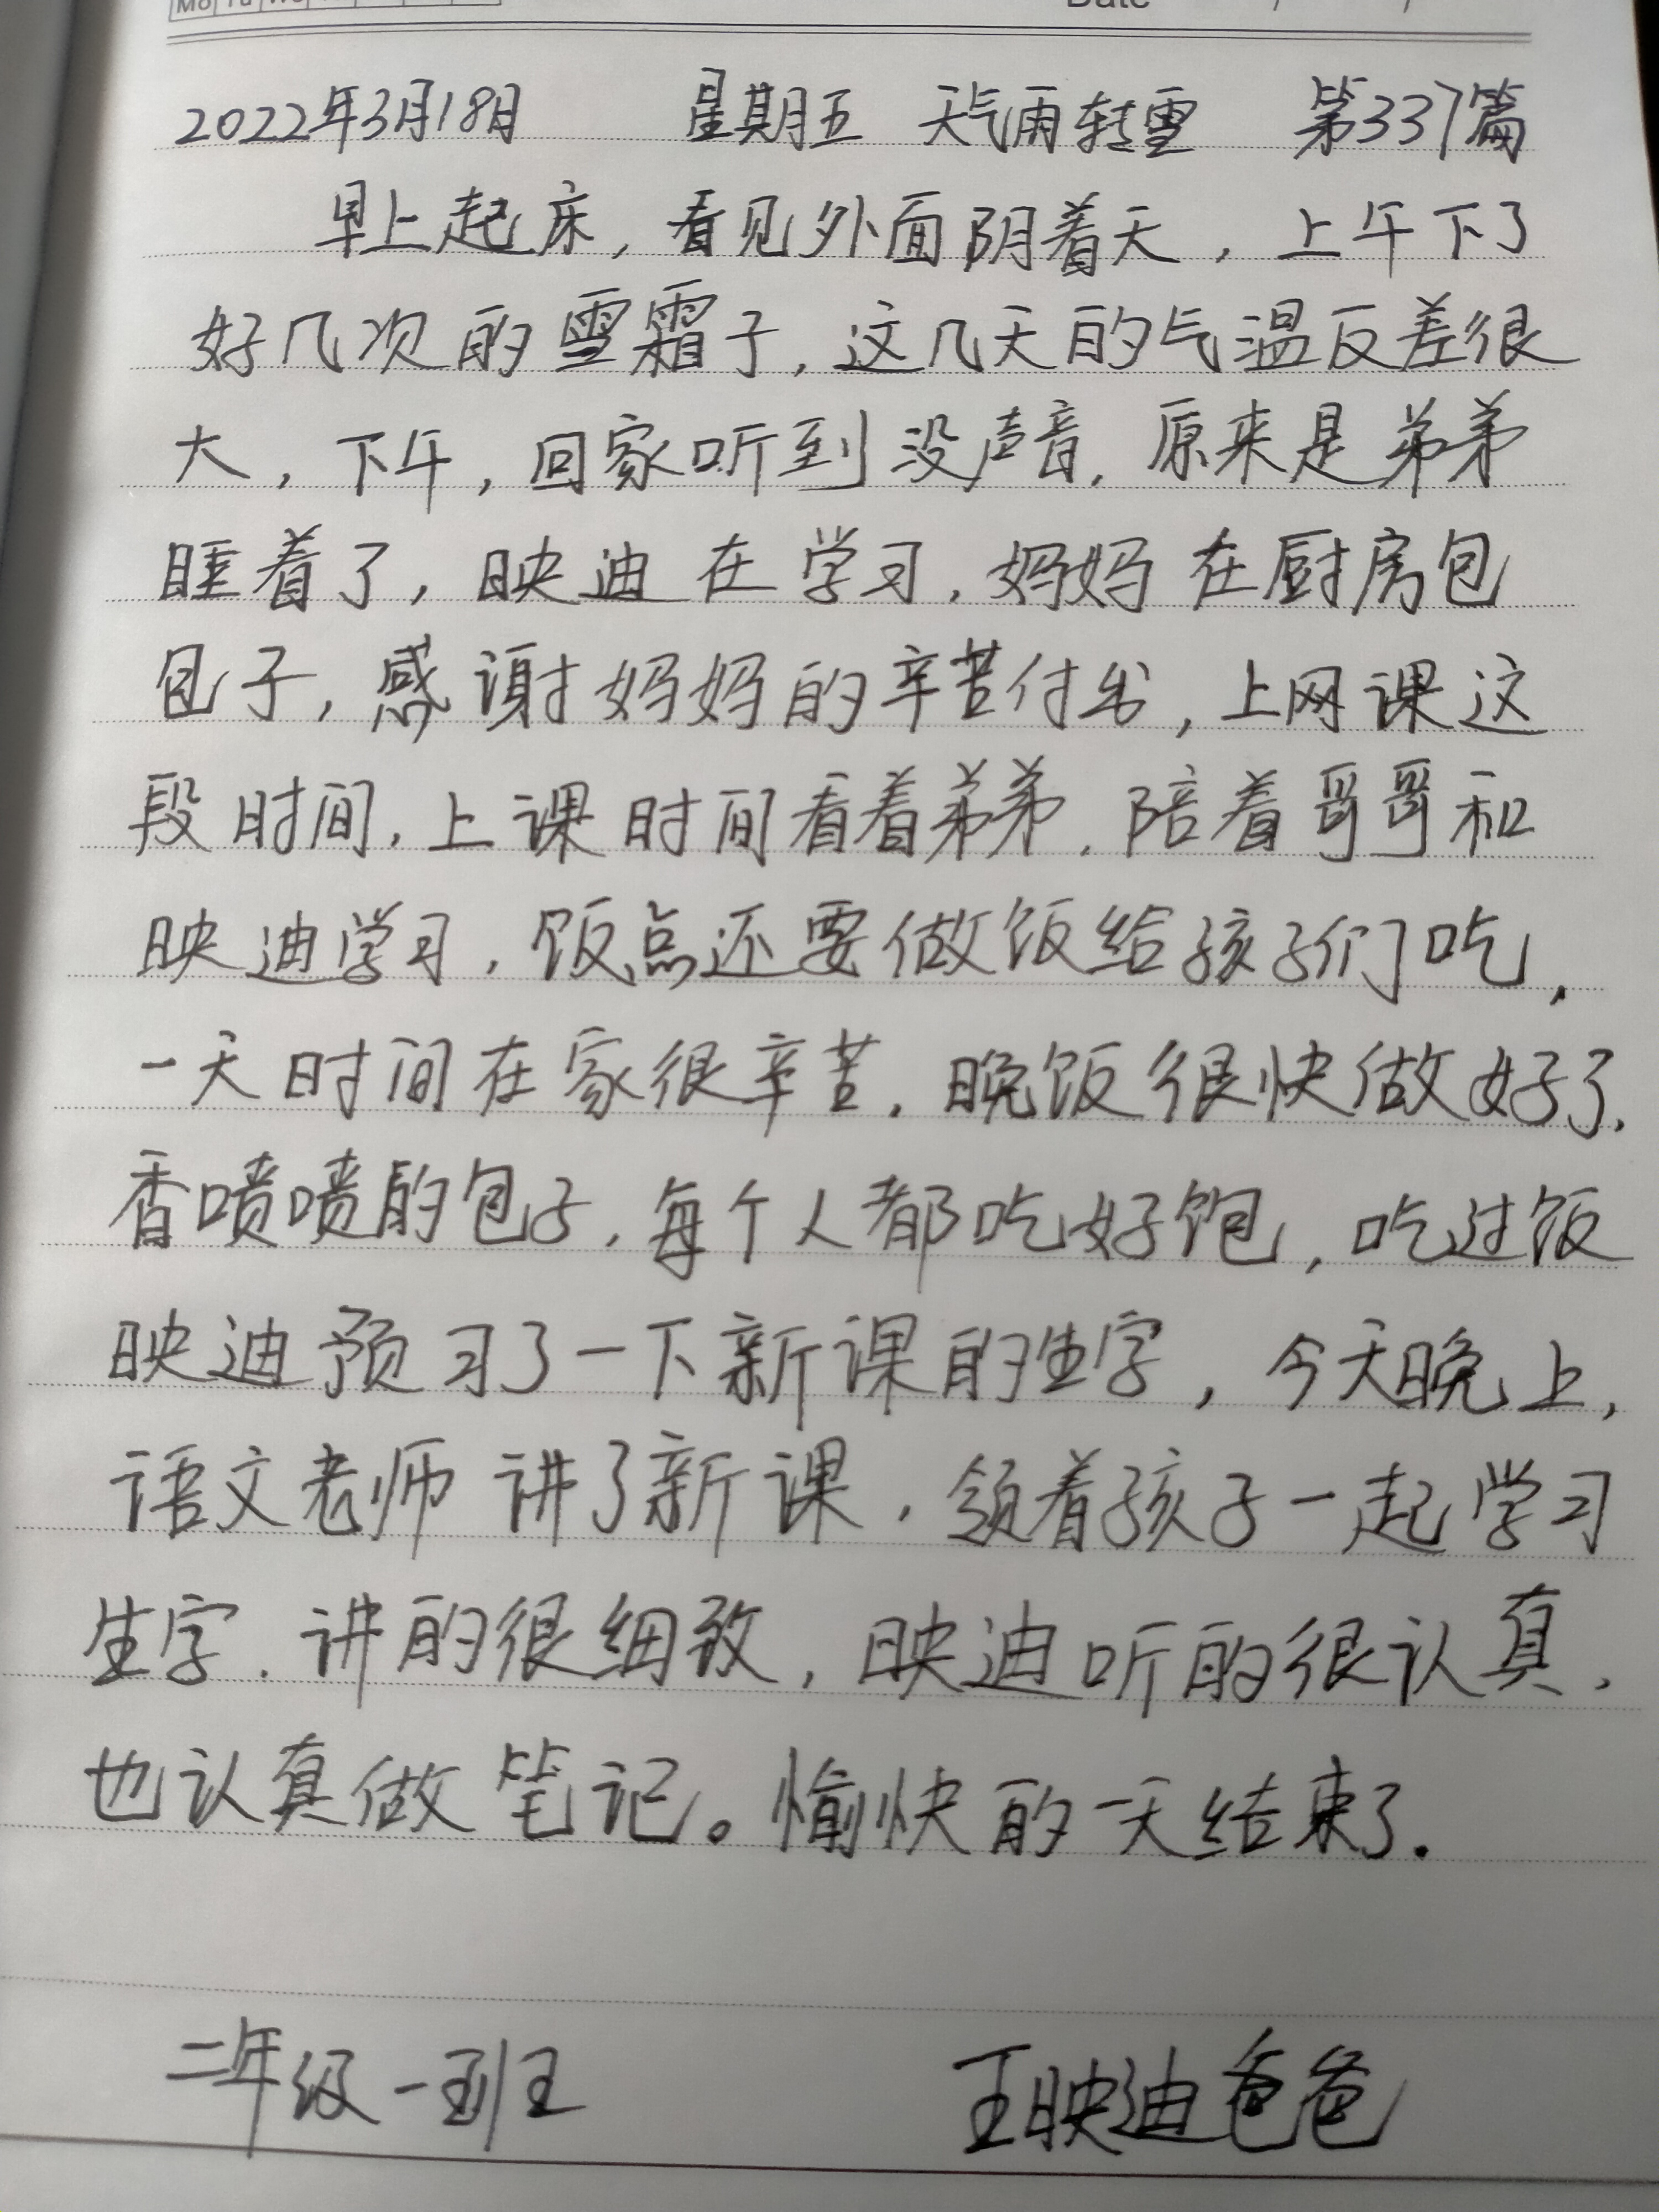 Date
2022年3月18日 星期五 天气雨转雪 第337篇
早上起床，看见外面阴着天，上午下了
好几次的雪霜子，这几天的气温反差很
大，下午，回家听到没声音，原来是弟弟
睡着了，映迪在学习，妈妈在厨房包
包子，感谢妈妈的辛苦付出，上网课这
段时间，上课时间看着弟弟，陪着哥哥和
映迪学习，饭点还要做饭给孩子们吃，
一天时间在家很辛苦，晚饭很快做好了，
香喷喷的包子，每个人都吃好饱，吃过饭
映迪预习了一下新课的生字，今天晚上，
语文老师讲了新课，领着孩子一起学习
生字，讲的很细致，映迪听的很认真，
也认真做笔记。愉快的一天结束了.
二年级一班 王映迪爸爸